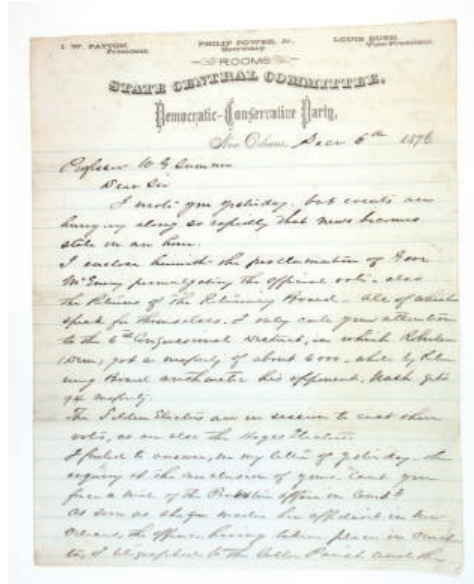 I. W. PATTON, President.
PHILIP POWER, Jr., Secretary.
LOUIS BUSH, Vice-President.
ROOMS
STATE CENTRAL COMMITTEE,
Democratic-Conservative Party,
New Orleans, Decr 6th 1876
Professor W G Sumner
Dear Sir
I wrote you yesterday, but events are
hurrying along so rapidly that news becomes
stale in an hour.
I enclose herewith the proclamation of Gov
McEnery promulgating the official vote - also
the Returns of the Returning Board - all of which
speak for themselves. I only call your attention
to the 6th Congressional District, in which Robertson
(Dem) got a majority of about 6000, while by Retur
ning Board arithmetic his opponent, Nash gets
majority.
The Tilden Electors are in session to cast their
vote, as are also the Hayes Electors.
I failed to answer, in my letter of yesterday - the
inquiry at the conclusion of yours. "Cant you
affair in Court?"
As soon as she made her affidavit in New
Orleans, the offence having taken place in
I telegraphed to the Parish and the